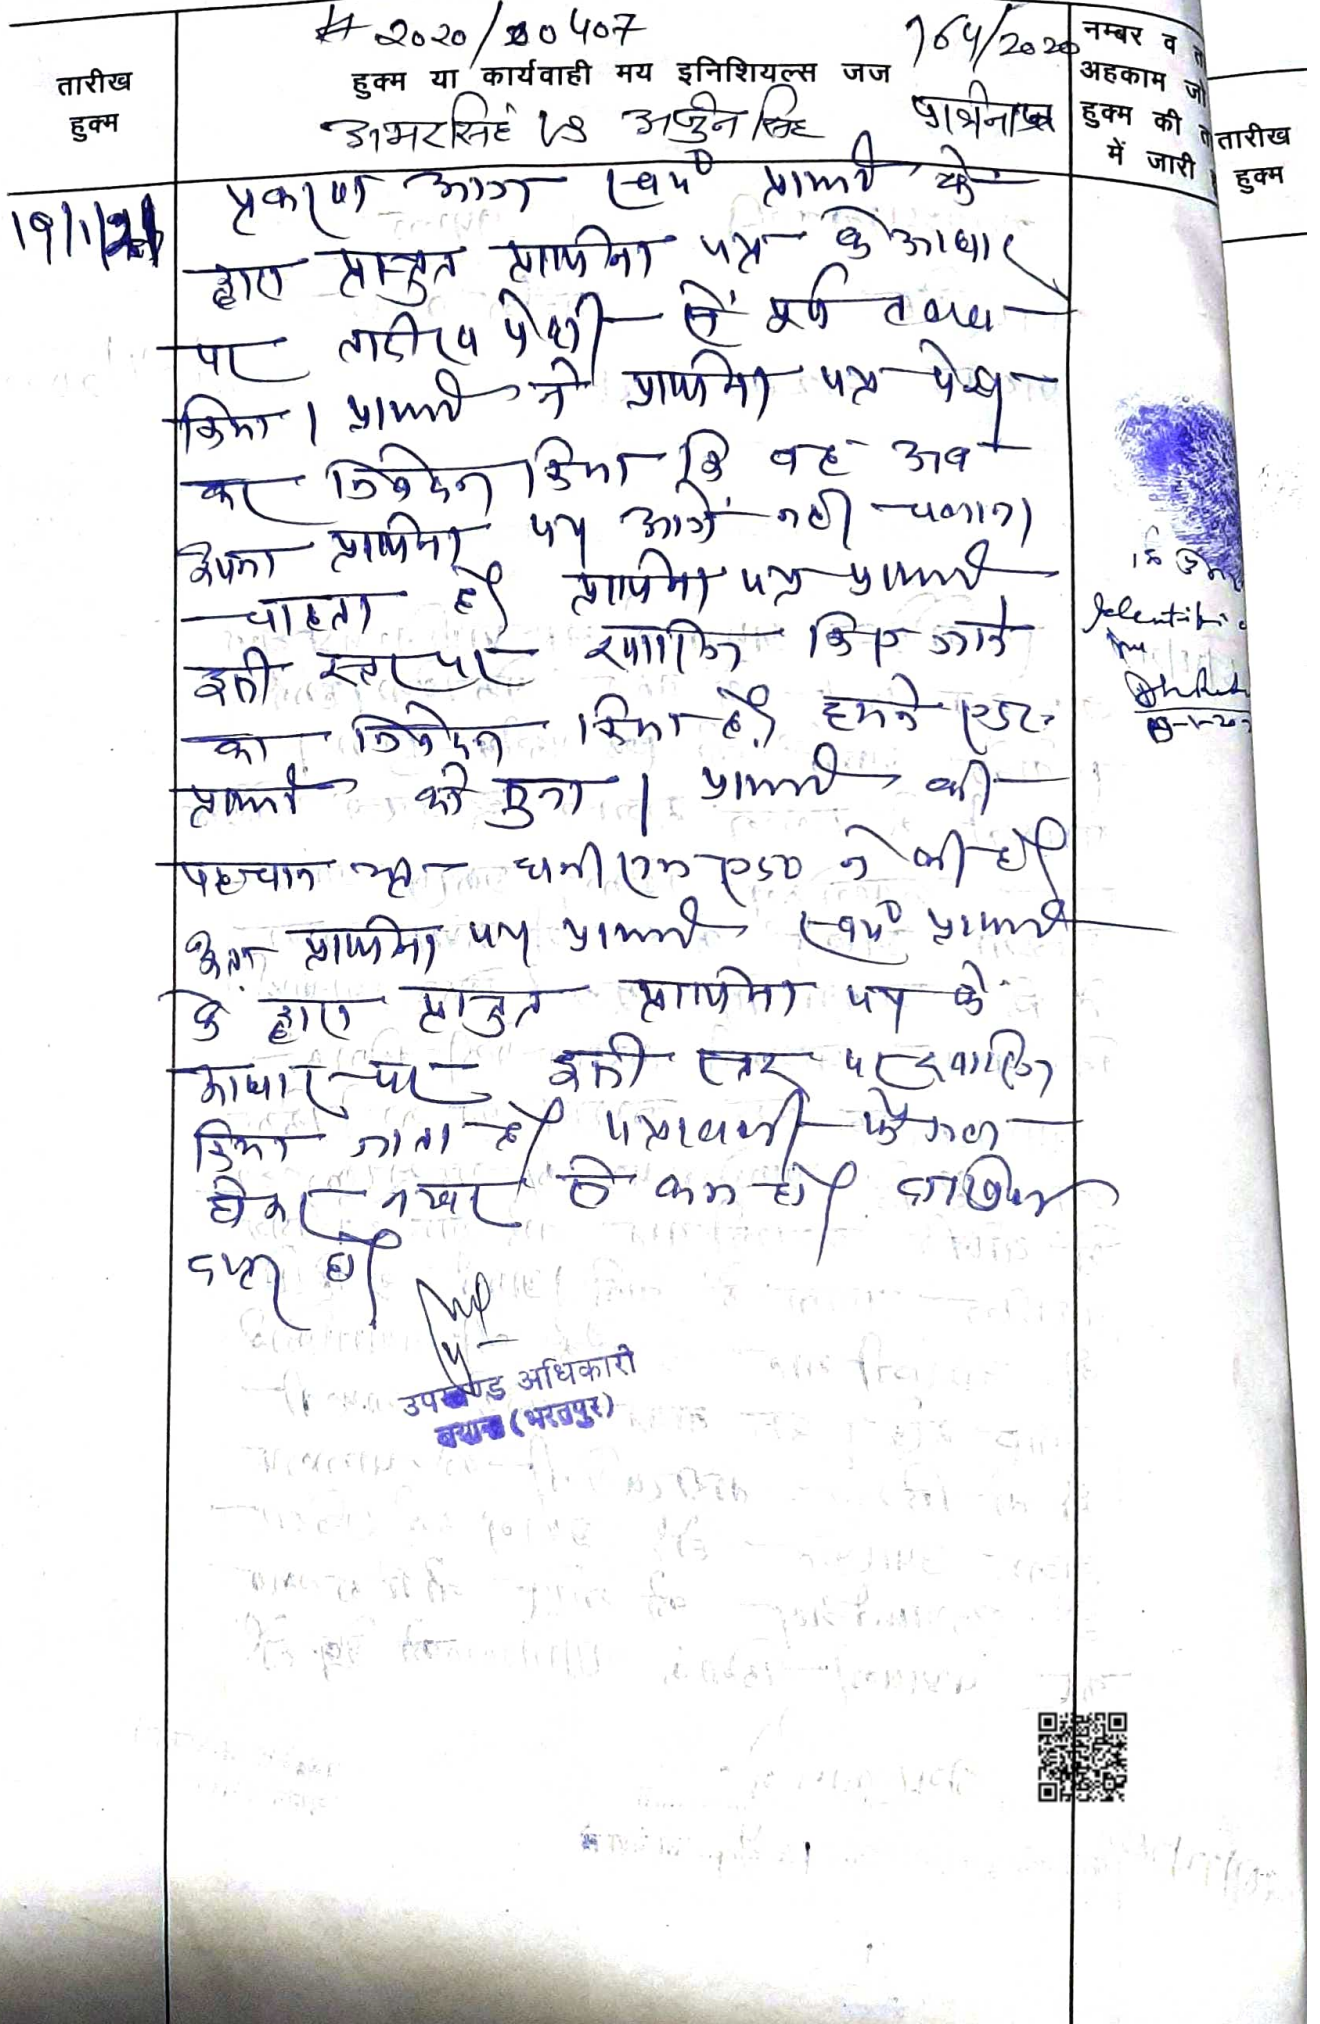 # 2020/00407 164/2020
तारीख
हुक्म
हुक्म या कार्यवाही मय इनिशियल्स जज
अमरसिंह VS अर्जुन सिंह प्रार्थनापत्र
नम्बर व
अहकाम जो
हुक्म की
में जारी
तारीख
हुक्म
19/1/21
प्रकरण आज स्वयं प्रार्थी के
द्वारा प्रस्तुत प्रार्थना पत्र के आधार
पर तारीख पेशी से पूर्व तलब
किया। प्रार्थी ने प्रार्थना पत्र पेश
कर निवेदन किया कि वह अब
अपना प्रार्थना पत्र आगे नही चलाना
चाहता है। प्रार्थना पत्र प्रार्थी
इसी स्तर पर खारिज किए जाने
का निवेदन किया है। हमने
प्रार्थी को सुना। प्रार्थी की
पहचान श्री एड० ने की है।
अतः प्रार्थना पत्र प्रार्थी स्वयं प्रार्थी
के द्वारा प्रस्तुत प्रार्थना पत्र के
आधार पर इसी स्तर पर खारिज
किया जाता है। पत्रावली फैसल
होकर नम्बर से कम हो। दाखिल
दफ्तर हो।
उपखण्ड अधिकारी
बयाना (भरतपुर)